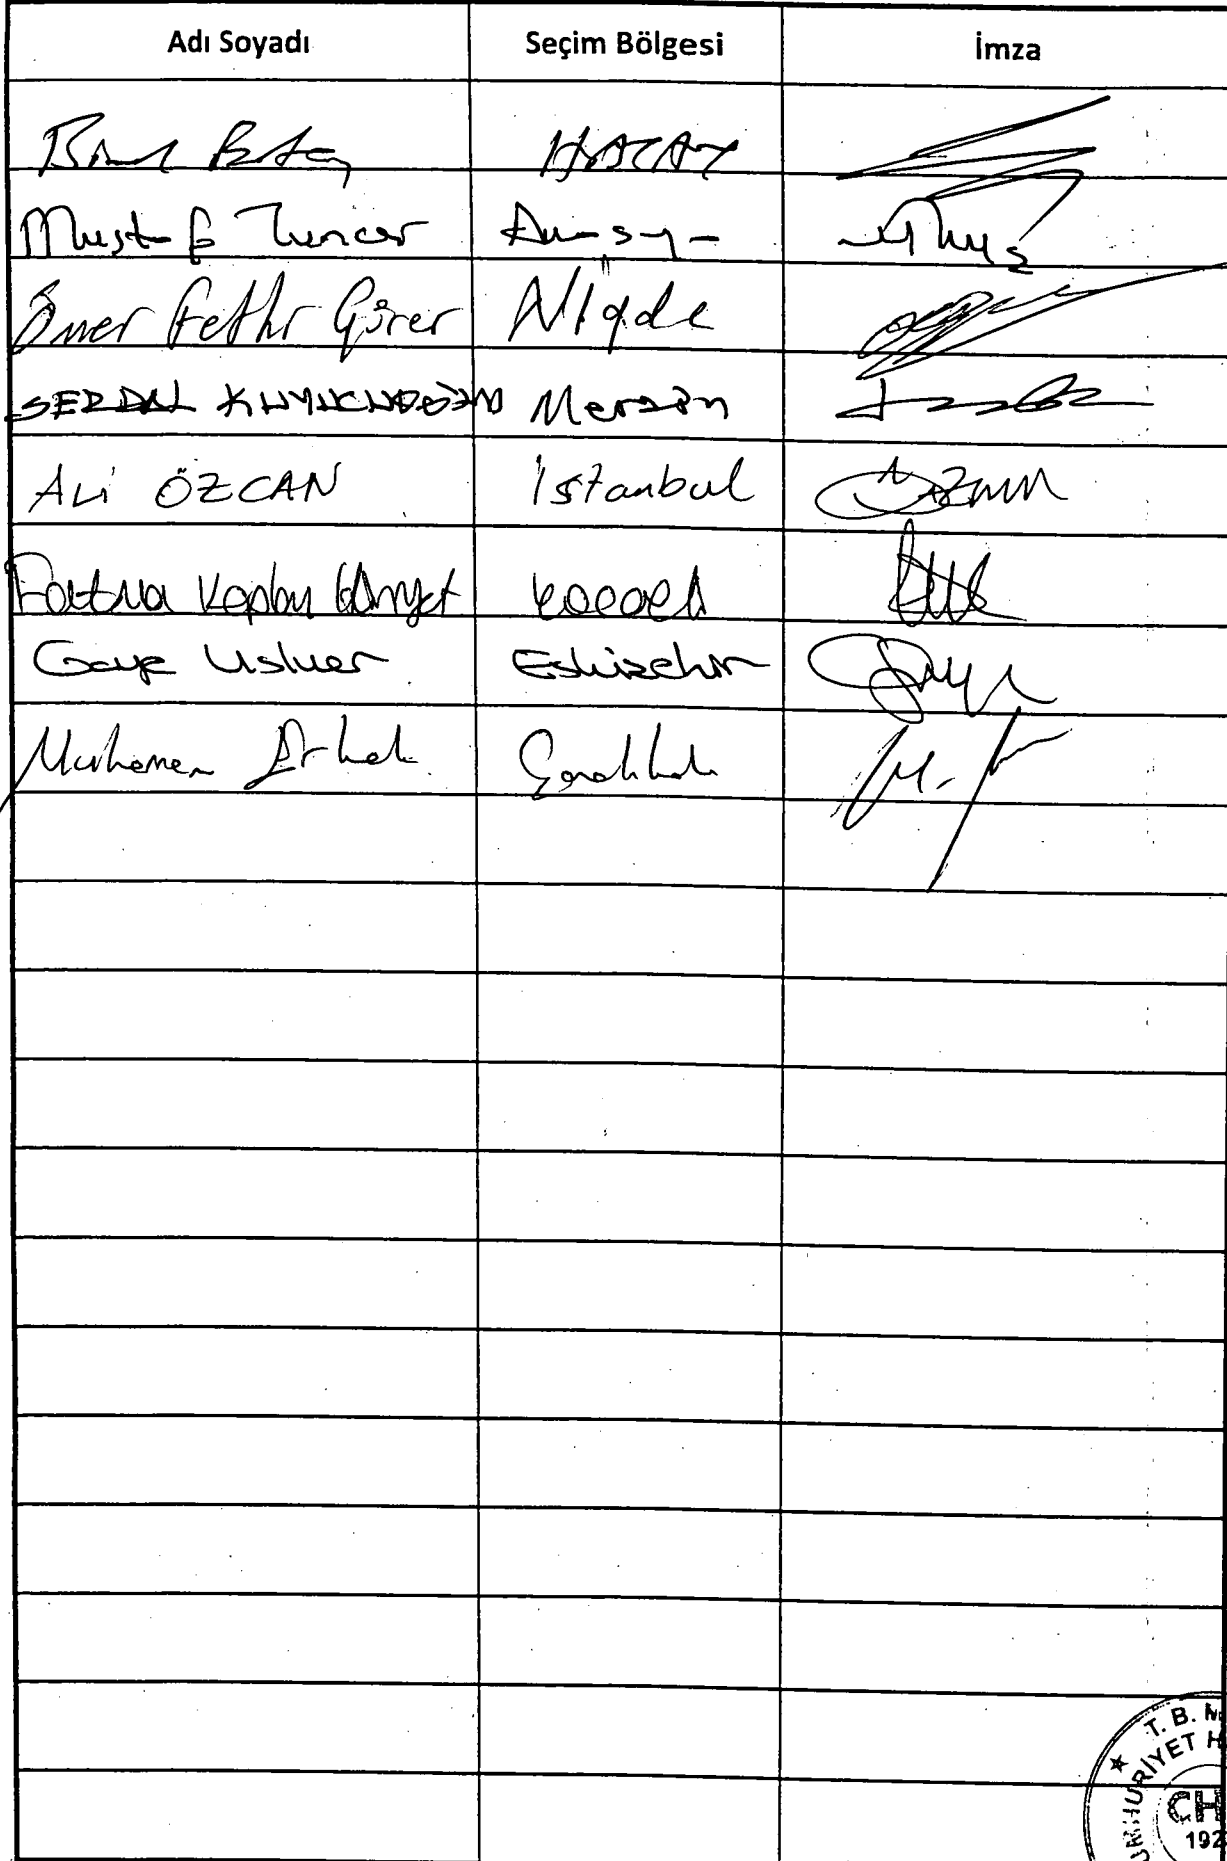 Adı Soyadı Seçim Bölgesi İmza
HATAY
Mustafa Tuncer Amasya
Ömer Fethi Gürer Niğde
SERDAL KUYUCUOĞLU Mersin
Ali ÖZCAN İstanbul
Fatma Kaplan Hürriyet Kocaeli
Gaye Usluer Eskişehir
Muharrem Erkek Çanakkale
T. B. M
CH
192